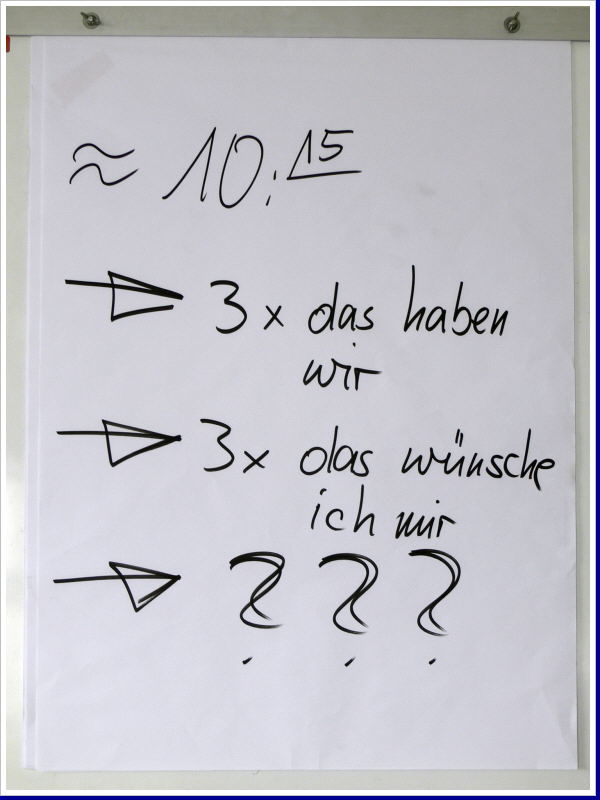 ≈ 10:15
→ 3x das haben
wir
→ 3x das wünsche
ich mir
→ ? ? ?